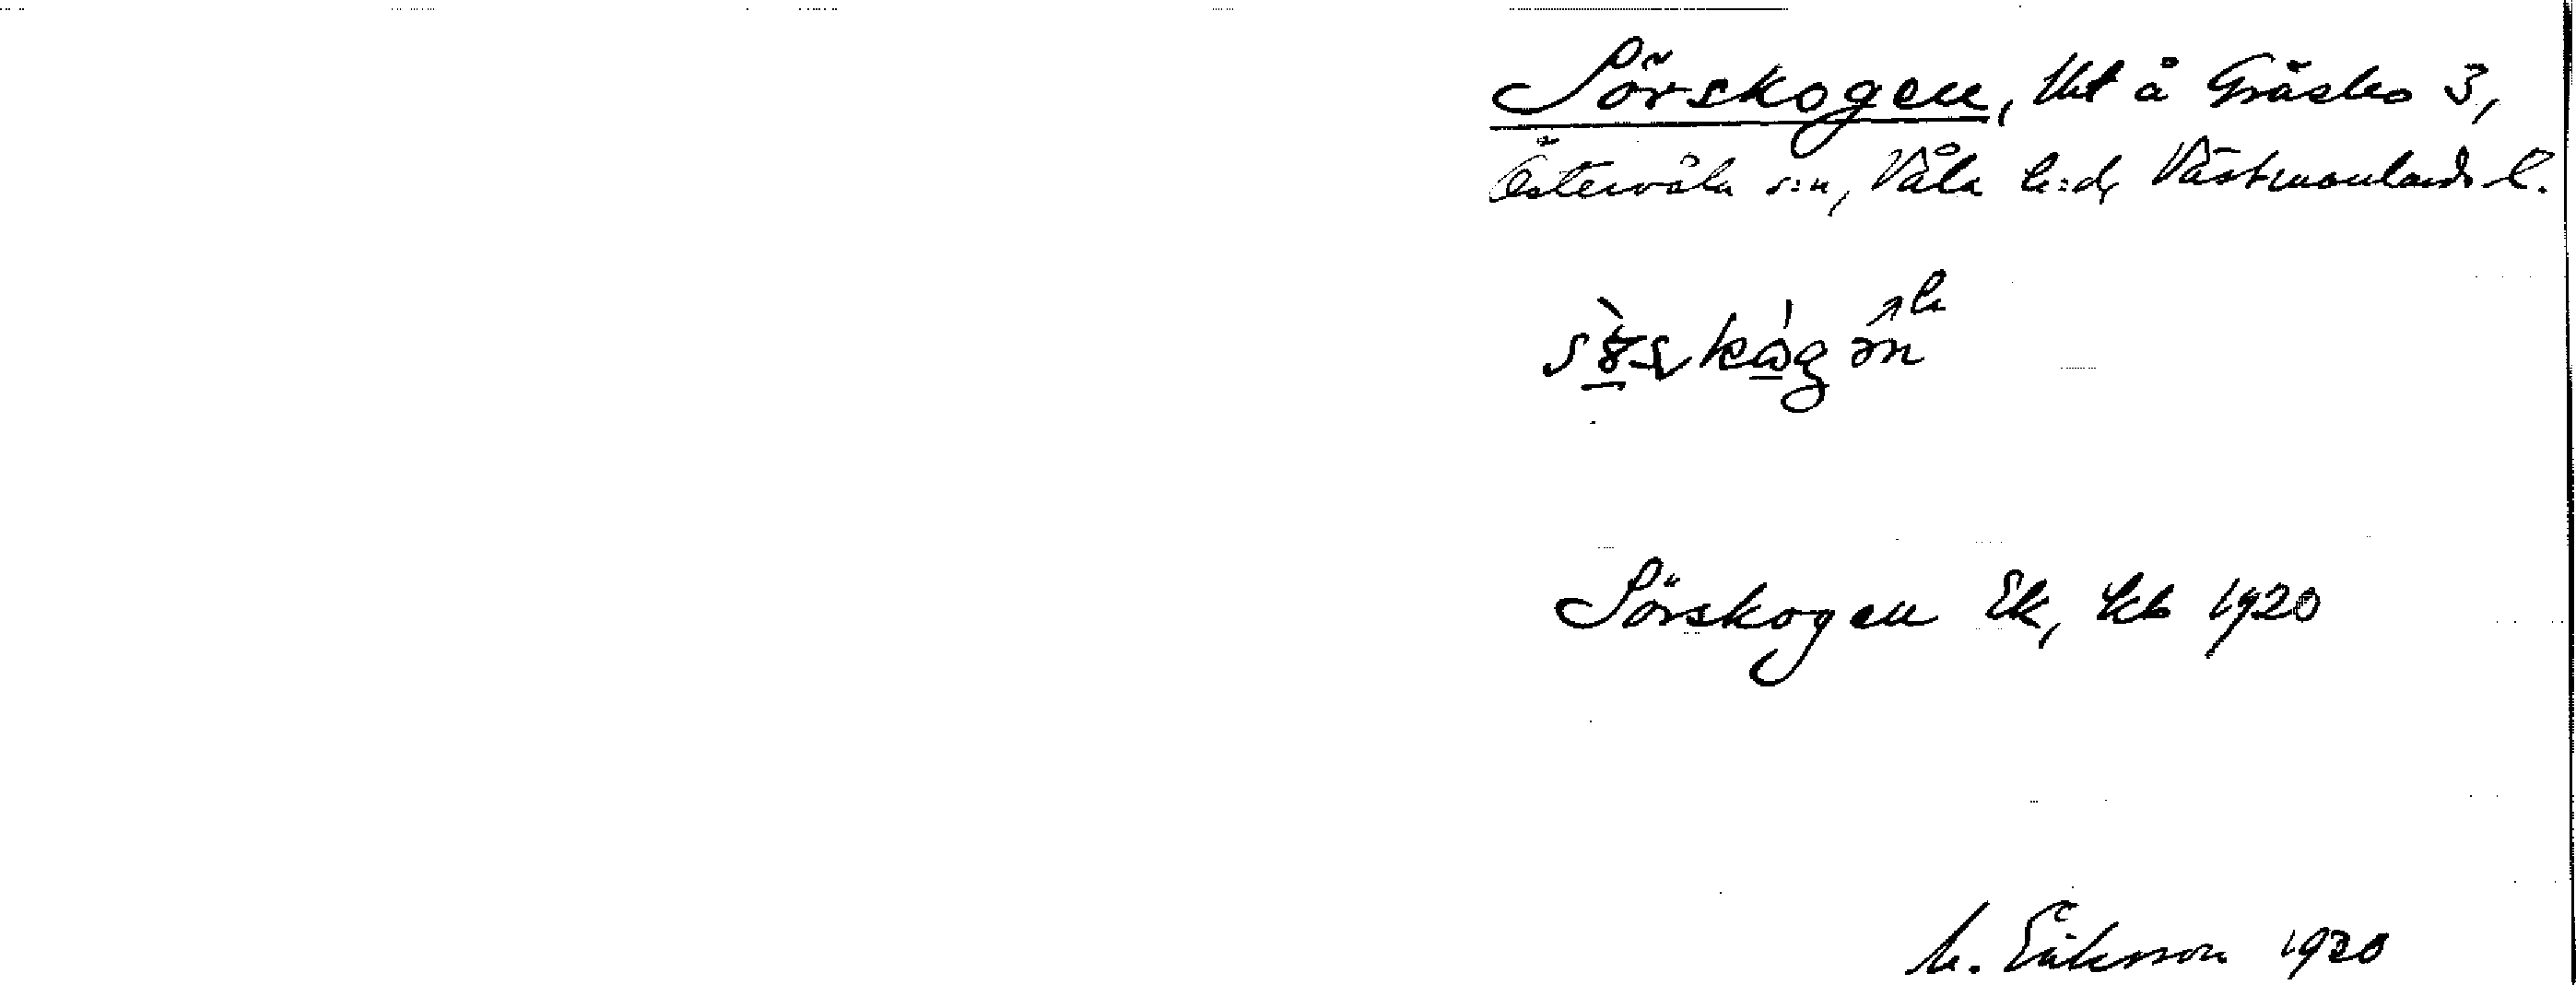 Sörskogen, lht å Gräsbo 3,
Östervåla s:n, Våla h:d, Västmanlands l.
Sörskogen Ek, kb 1920
M. Eriksson 1920